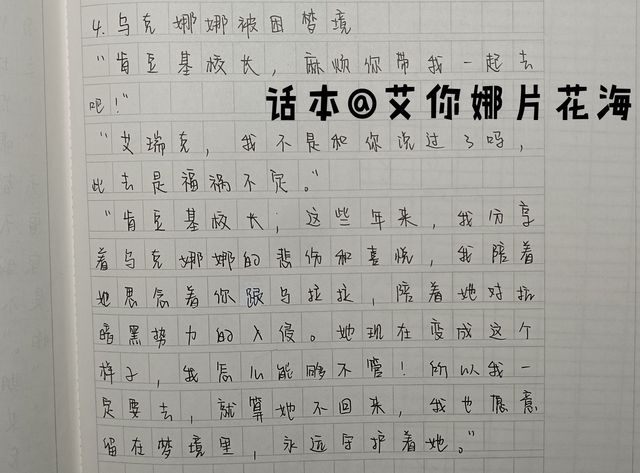 4.乌克娜娜被困梦境
“肯豆基校长，麻烦你带我一起去
吧！”
话本@艾你娜片花海
“艾瑞克，我不是和你说过了吗，
此去是福祸不定。”
“肯豆基校长，这些年来，我分享
着乌克娜娜的悲伤和喜悦，我陪着
她思念着你跟乌拉拉，陪着她对抗
暗黑势力的入侵。她现在变成这个
样子，我怎么能够不管！所以我一
定要去，就算她不回来，我也愿意
留在梦境里，永远守护着她。”